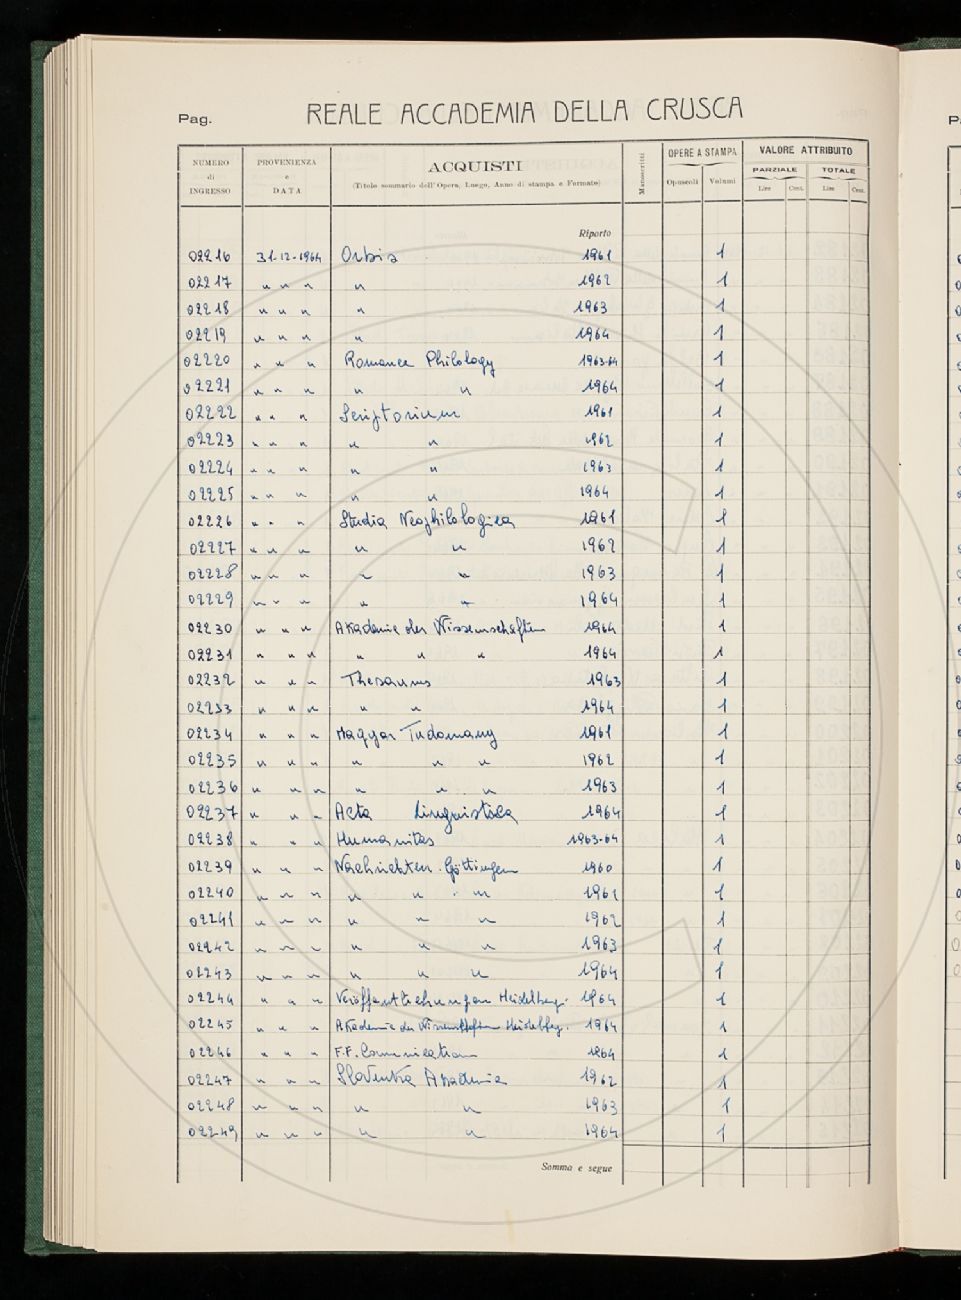 Pag. REALE ACCADEMIA DELLA CRUSCA
NUMERO di INGRESSO PROVENIENZA e DATA ACQUISTI (Titolo sommario dell'Opera, Luogo, Anno di stampa e Formato) Manoscritti OPERE A STAMPA Opuscoli Volumi VALORE ATTRIBUITO PARZIALE Lire Cent. TOTALE Lire Cent.
Riporto
02216 31-12-1964 Orbis 1961 1
02217 " " " " 1962 1
02218 " " " " 1963 1
02219 " " " " 1964 1
02220 " " " Romance Philology 1963-64 1
02221 " " " " " 1964 1
02222 " " " Scriptorium 1961 1
02223 " " " " " 1962 1
02224 " " " " " 1963 1
02225 " " " " " 1964 1
02226 " " " Studia Neophilologica 1961 1
02227 " " " " " 1962 1
02228 " " " " " 1963 1
02229 " " " " " 1964 1
02230 " " " Akademie der Wissenschaften 1964 1
02231 " " " " " " 1964 1
02232 " " " Thesaurus 1963 1
02233 " " " " " 1964 1
02234 " " " Magyar Tudomany 1961 1
02235 " " " " " " 1962 1
02236 " " " " " " 1963 1
02237 " " " Acta Linguistica 1964 1
02238 " " " Humanitas 1963-64 1
02239 " " " Nachrichten. Göttingen 1960 1
02240 " " " " " " 1961 1
02241 " " " " " " 1962 1
02242 " " " " " " 1963 1
02243 " " " " " " 1964 1
02244 " " " Veröffentlichungen Heidelberg. 1964 1
02245 " " " Akademie der Wissenschaften Heidelberg. 1964 1
02246 " " " F.F. Comunication 1964 1
02247 " " " Slovenska Akademia 1962 1
02248 " " " " " 1963 1
02249 " " " " " 1964 1
Somma e segue